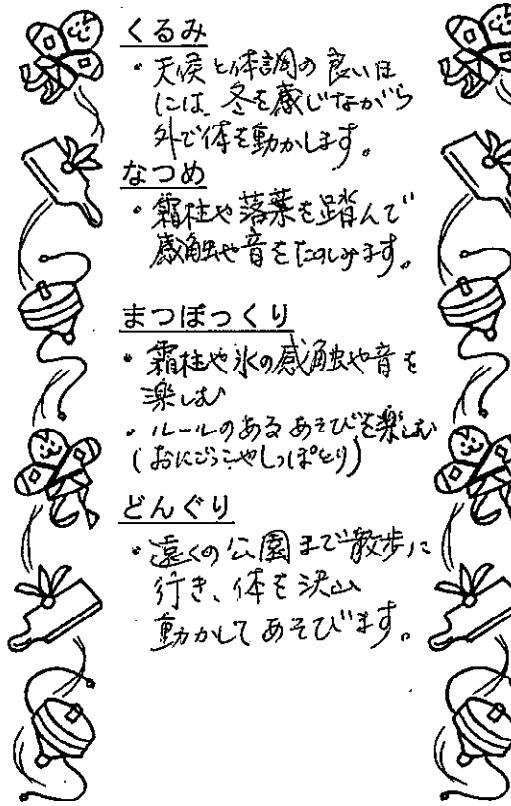 くるみ
・天候と体調の良い日
には、冬を感じながら
外で体を動かします。
なつめ
・霜柱や落葉を踏んで
感触や音をたのしみます。
まつぼっくり
・霜柱や氷の感触や音を
楽しむ
・ルールのあるあそびを楽しむ
(おにごっこやしっぽとり)
どんぐり
・遠くの公園まで散歩に
行き、体を沢山
動かしてあそびます。